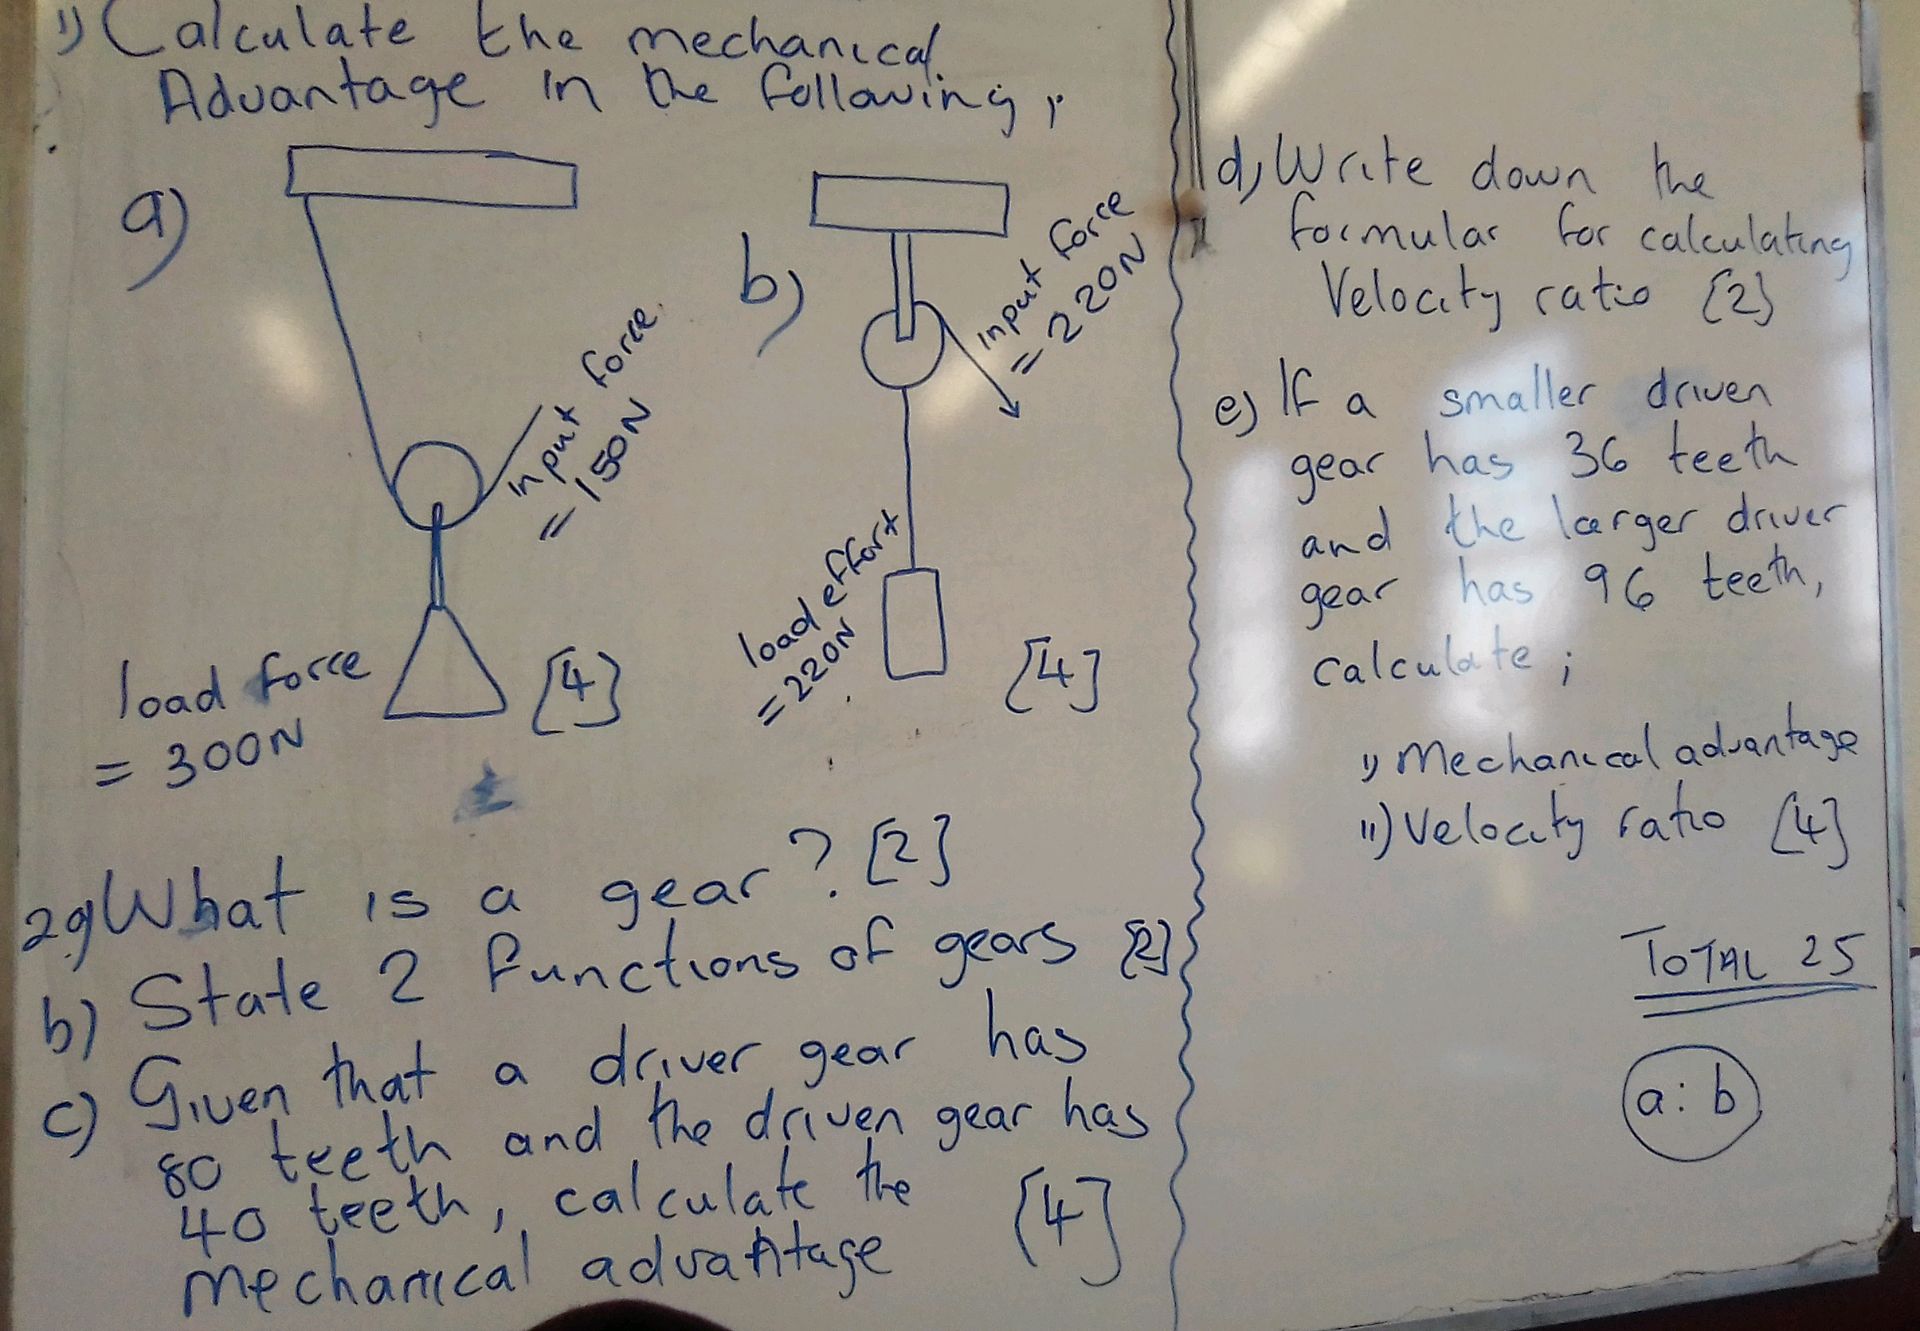 1) Calculate the mechanical
Advantage in the following;
a)
input force
= 150N
load force
= 300N
[4]
b)
input force
= 220N
load effort
= 220N
[4]
2a) What is a gear? [2]
b) State 2 functions of gears [2]
c) Given that a driver gear has
80 teeth and the driven gear has
40 teeth, calculate the
mechanical advantage [4]
d) Write down the
formular for calculating
Velocity ratio [2]
e) If a smaller driven
gear has 36 teeth
and the larger driver
gear has 96 teeth,
calculate;
i) Mechanical advantage
ii) Velocity ratio [4]
TOTAL 25
a:b